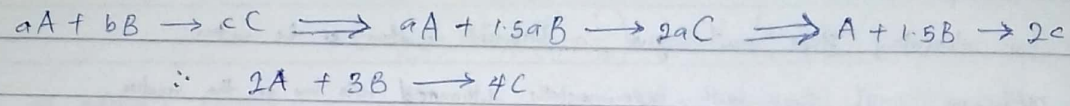 aA + bB → cC ⟹ aA + 1.5aB → 2aC ⟹ A + 1.5B → 2C
∴ 2A + 3B → 4C